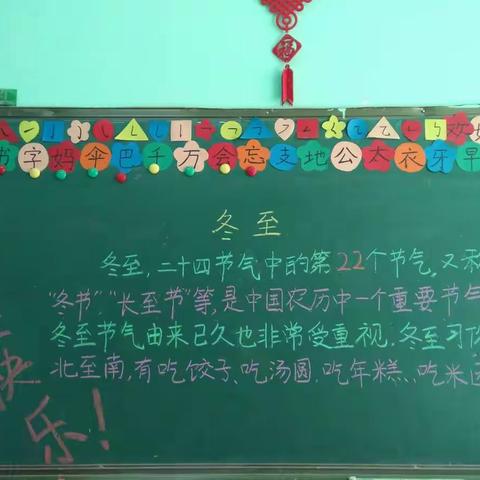 福
字妈伞巴千万会忘支地公太衣牙早
冬至
冬至，二十四节气中的第22个节气。又
“冬节”，“长至节”等，是中国农历中一个重要节气
冬至节气由来已久也非常受重视；冬至习
北至南，有吃饺子、吃汤圆、吃年糕、吃米
快
乐！